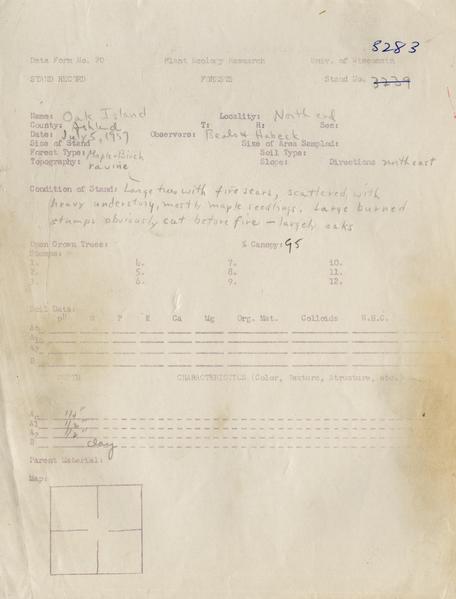 3283
Data Form No. 20 Plant Ecology Research Univ. of Wisconsin
STAND RECORD FORESTS Stand No. 3239
Name: Oak Island Locality: North end
County: Ashland T: R: Sec:
Date: July 5, 1957 Observers: Beals & Habeck
Size of Stand Size of Area Sampled:
Forest Type: Maple-Birch Soil Type:
Topography: ravine Slope: Direction: northeast
Condition of Stand: Large trees with fire scars, scattered, with
heavy understory, mostly maple seedlings. Large burned
stumps obviously cut before fire – largely oaks
Open Grown Trees: % Canopy: 95
Stumps:
1. 4. 7. 10.
2. 5. 8. 11.
3. 6. 9. 12.
Soil Data:
pH N P K Ca Mg Org. Mat. Colloids W.H.C.
A0
A1
A2
B
DEPTH CHARACTERISTICS (Color, Texture, Structure, etc.)
A0 1/4"
A1 1/2"
A2 1/2"
B clay
Parent Material:
Map: